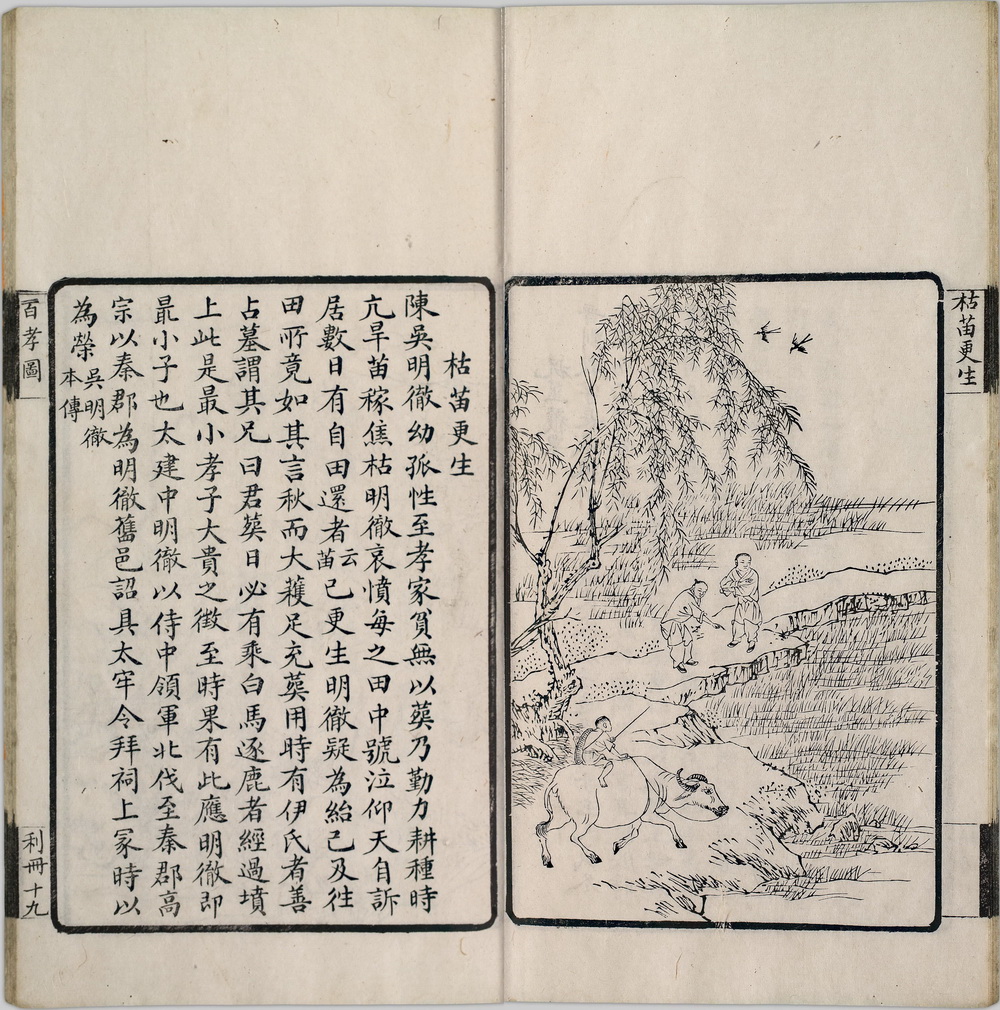 枯苗更生
枯苗更生
陳吳明徹幼孤性至孝家貧無以葬乃勤力耕種時
亢旱苗稼焦枯明徹哀憤每之田中號泣仰天自訴
居數日有自田還者云苗已更生明徹疑為紿己及往
田所竟如其言秋而大穫足充葬用時有伊氏者善
占墓謂其兄曰君葬日必有乘白馬逐鹿者經過墳
上此是最小孝子大貴之徵至時果有此應明徹即
最小子也太建中明徹以侍中領軍北伐至秦郡高
宗以秦郡為明徹舊邑詔具太牢令拜祠上冢時以
為榮吳明徹本傳
百孝圖
利冊十九